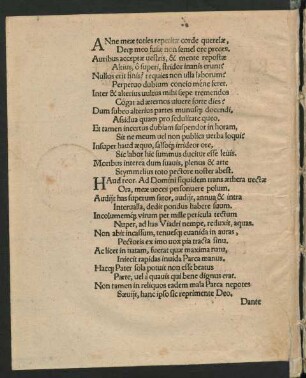 ANne meæ toties repetitæ corde querelæ,
Deq; meo fusæ non semel ore preces,
Auribus acceptæ vestris, & mente repostæ
Altius, ô superi, stridor inanis erunt?
Nullus erit finis? requies non ulla laborum?
Perpetuo dubium concio mene feret.
Inter & alterius vultus mihi sępe tremendos
Cogar ad æternos vivere forte dies?
Dum subeo alterius partes munusq; docendi,
Assidua quam pro sedulitate queo.
Et tamen incertus dubiam suspendor in horam,
Sit ne meum vel non publica verba loqui?
Insuper haud æquo, falsoq; irrideor ore,
Sic labor hic summus ducitur esse levis.
Mentibus interea dum suavis, plenus & ante
Stymmelius toto pectore nosse abest.
HAud reor. Ad Domini siquidem nunc æthera vectæ
Ora, meæ voces personuere polum.
Audijt has superum sator, audijt, annua & intra
Intervalla, dedit pondus habere suum.
Incolumemq; virum per mille pericula tectum
Nuper, ad has Viadri nempe, reduxit, aquas.
Non abijt incassum, tenuesq; evanida in auras,
Pectoris ex imo vox pia tracta sinu.
Ac licet in natam, fuerat quæ maxima natu,
Iniecit rapidas invida Parca manus,
Hæcq; Pater sola potuit non esse beatus
Parte, vel à quavis qui bene dignus erat.
Non tamen in reliquos eadem mala Parca nepotes
Sæviit, hanc ipso sic reprimente Deo,
Dante